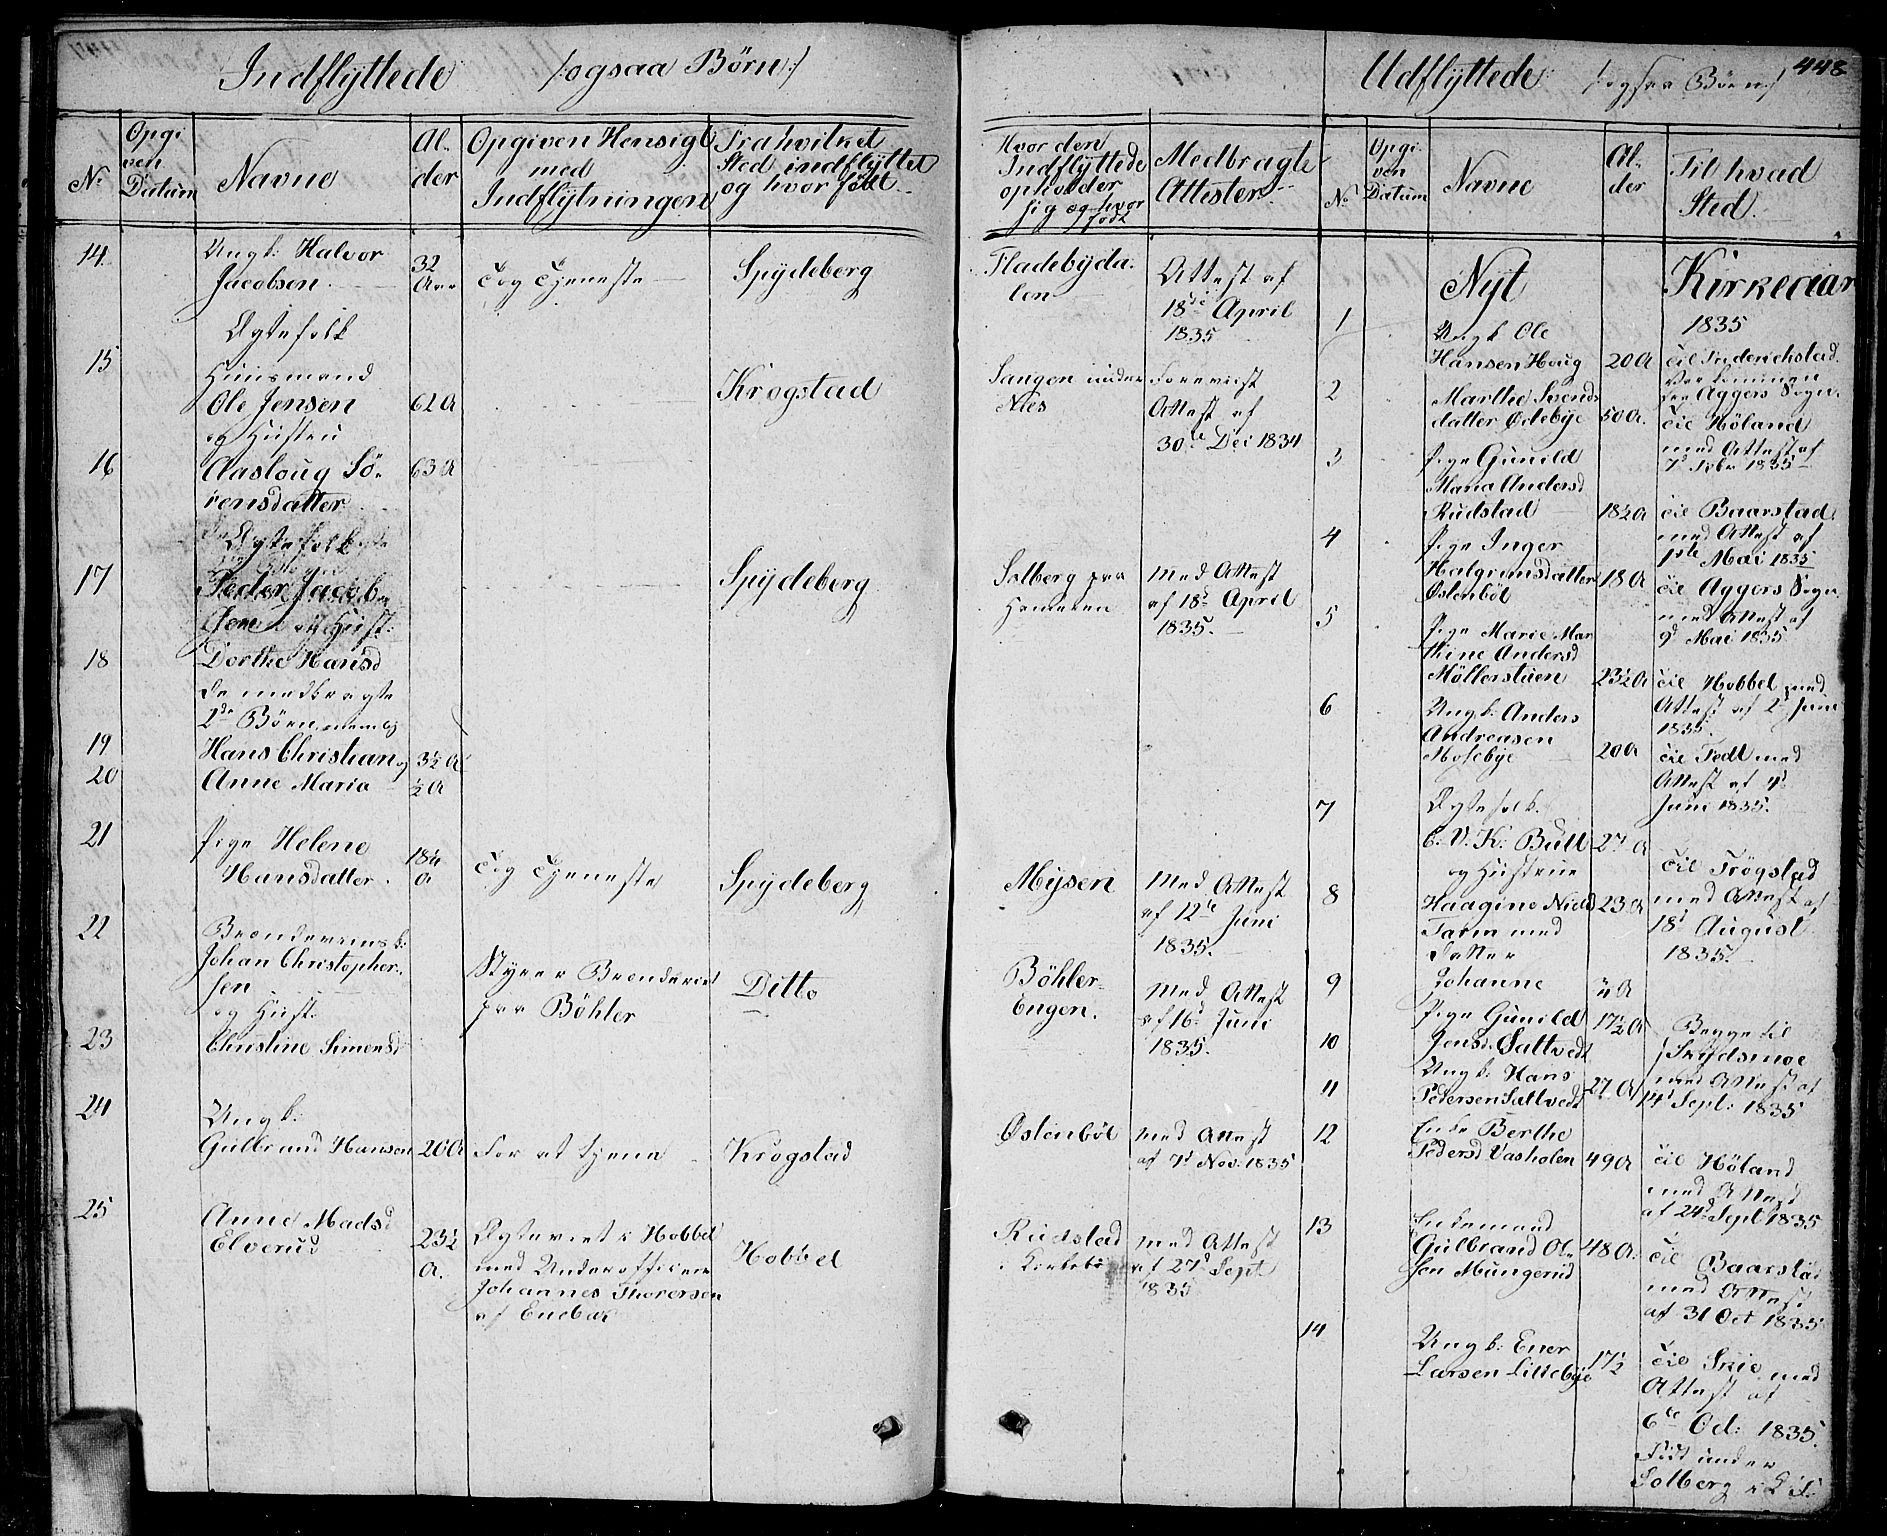 Indflyttede /:ogsaa Børn:/
No
Opgi
ven
Datum
Navne
Al-
der
Opgiven Hensigt
med
Indflytningen
Fra hvilket
Sted indflyttet
og hvor født
Hvor den
Indflyttede
opholder
sig og hvor
født
Medbragte
Attester.
14
Ungk: Halvor
Jacobsen
32
Aar
Tog Tjeneste
Spydeberg
Fladebyda-
len
Attest af
18de April
1835
15
Ægtefolk
Huusmand
Ole Jensen
og Hustru
62 A
Krogstad
Sangen under
Næs
Foreviist
Attest af
30te Dec 1834
16
Aasloug Sö-
rensdatter
63 A
17
Ægtefolk
Peder Jacob-
sen og Hust:
Spydeberg
Solberg paa
med Attest
af 18de April
1835.
18
Dorthe Hansd
De medbragte
2de Børn nemlig
19
Hans Christian og
3½ A
20
Anne Maria
½ A
21
Pige Helene
Hansdatter
18¼
A
Tog Tjeneste
Spydeberg
Mysen
Med Attest
af 12te Juni
1835.
22
Johan Christopher-
sen
og Hust:
Styrer Brænderiet
paa Böhler
Ditto
Böhler-
Engen.
Med Attest
af 16de Juni
1835.
23
Christine Simensd
24
Ungk:
Gulbrand Hansen
20 A
For at tjene
Krogstad
Østenböl
med Attest
af 7d Nov: 1835
25
Anne Madsd
Elverud
23½
A.
Ægteviet i Hobbel
med Underofficeer
Johannes Thorersen
af Enebak
Hobbel
Rudstad
i Kirkeb
med Attest
af 27d Sept
1835
Udflyttede /:ogsaa Børn:/
448
No
Opgi
ven
Datum
Navne
Al-
der
Til hvad
Sted.
Nyt Kirkeaar
1835
1
Ungk Ole
Hansen Houg
20 A
til Friderichstad
2
Marthe Svends
datter Ødebye
50 A.
var kommen
fra Aggers Sogn.
til Höland
med Attest af
1835
3
Pige Gunild
Maria Andersd
Rudstad
18½ A
til Baarstad
med Attest af
1ste Mai 1835
4
Pige Inger
Halgrimsdatter
Østenböl
18 A
til Aggers Sogn
med Attest af
9d Mai 1835
5
Pige Marie Mar
thine Andersd
Möllerstuen
23½ A
til Hobbel med
Attest af 2d Juni
1835.
6
Ungk: Anders
Andreasen
Mosebye
20 A
til Fedt med
Attest af 4d
Juni 1835.
7
Ægtefolk.
C. V. K: Bull
og Hustrue
27 A
til Trögstad
med Attest af
18d August
1835.
8
Haagine Nield
Tarm med
Datter
23 A
9
Johanne
¾ A
10
Pige Gunild
Jensd. Sattvedt
17½ A
Begge til
Skydsmoe
med Attest af
14d Sept: 1835
11
Ungk: Hans
Pedersen Sattvedt
27. A
12
Enke Berthe
Pedersd Vasholen
49 A
til Höland
med Attest
af 24d Sept 1835
13
Enkemand
Gulbrand Ol-
sen Mungerud
48 A.
til Baarstad
med Attest
af 31 Oct 1835
14
Ungk: Ener
Larsen Lillebye
17½
til Skie med
Attest af
6te Oct: 1835.
Født under
Solberg i